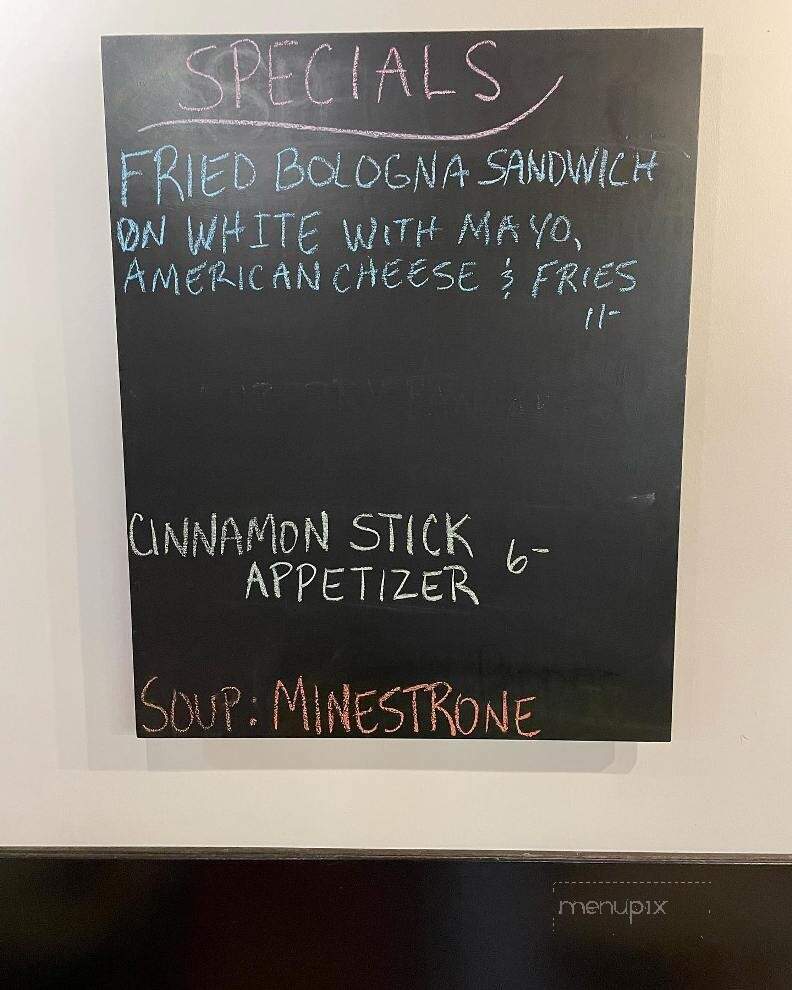 SPECIALS
FRIED BOLOGNA SANDWICH
ON WHITE WITH MAYO,
AMERICAN CHEESE & FRIES
11-
CINNAMON STICK 6-
APPETIZER
SOUP: MINESTRONE
menupix